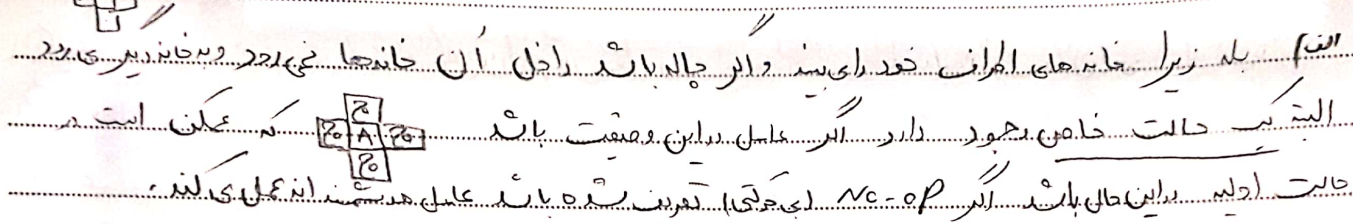 الف) بله زیرا خانه های اطراف خود را می بیند و اگر چاله باشد داخل آن خانه ها نمی رود و به خانه دیگر می رود
البته یک حالت خاص وجود دارد اگر عامل در این وضعیت باشد چ چ A چ چ که ممکن است در
حالت اولیه در این حال باشد اگر No-op (بی حرکتی) تعریف شده باشد عامل هوشمندانه عمل می کند.